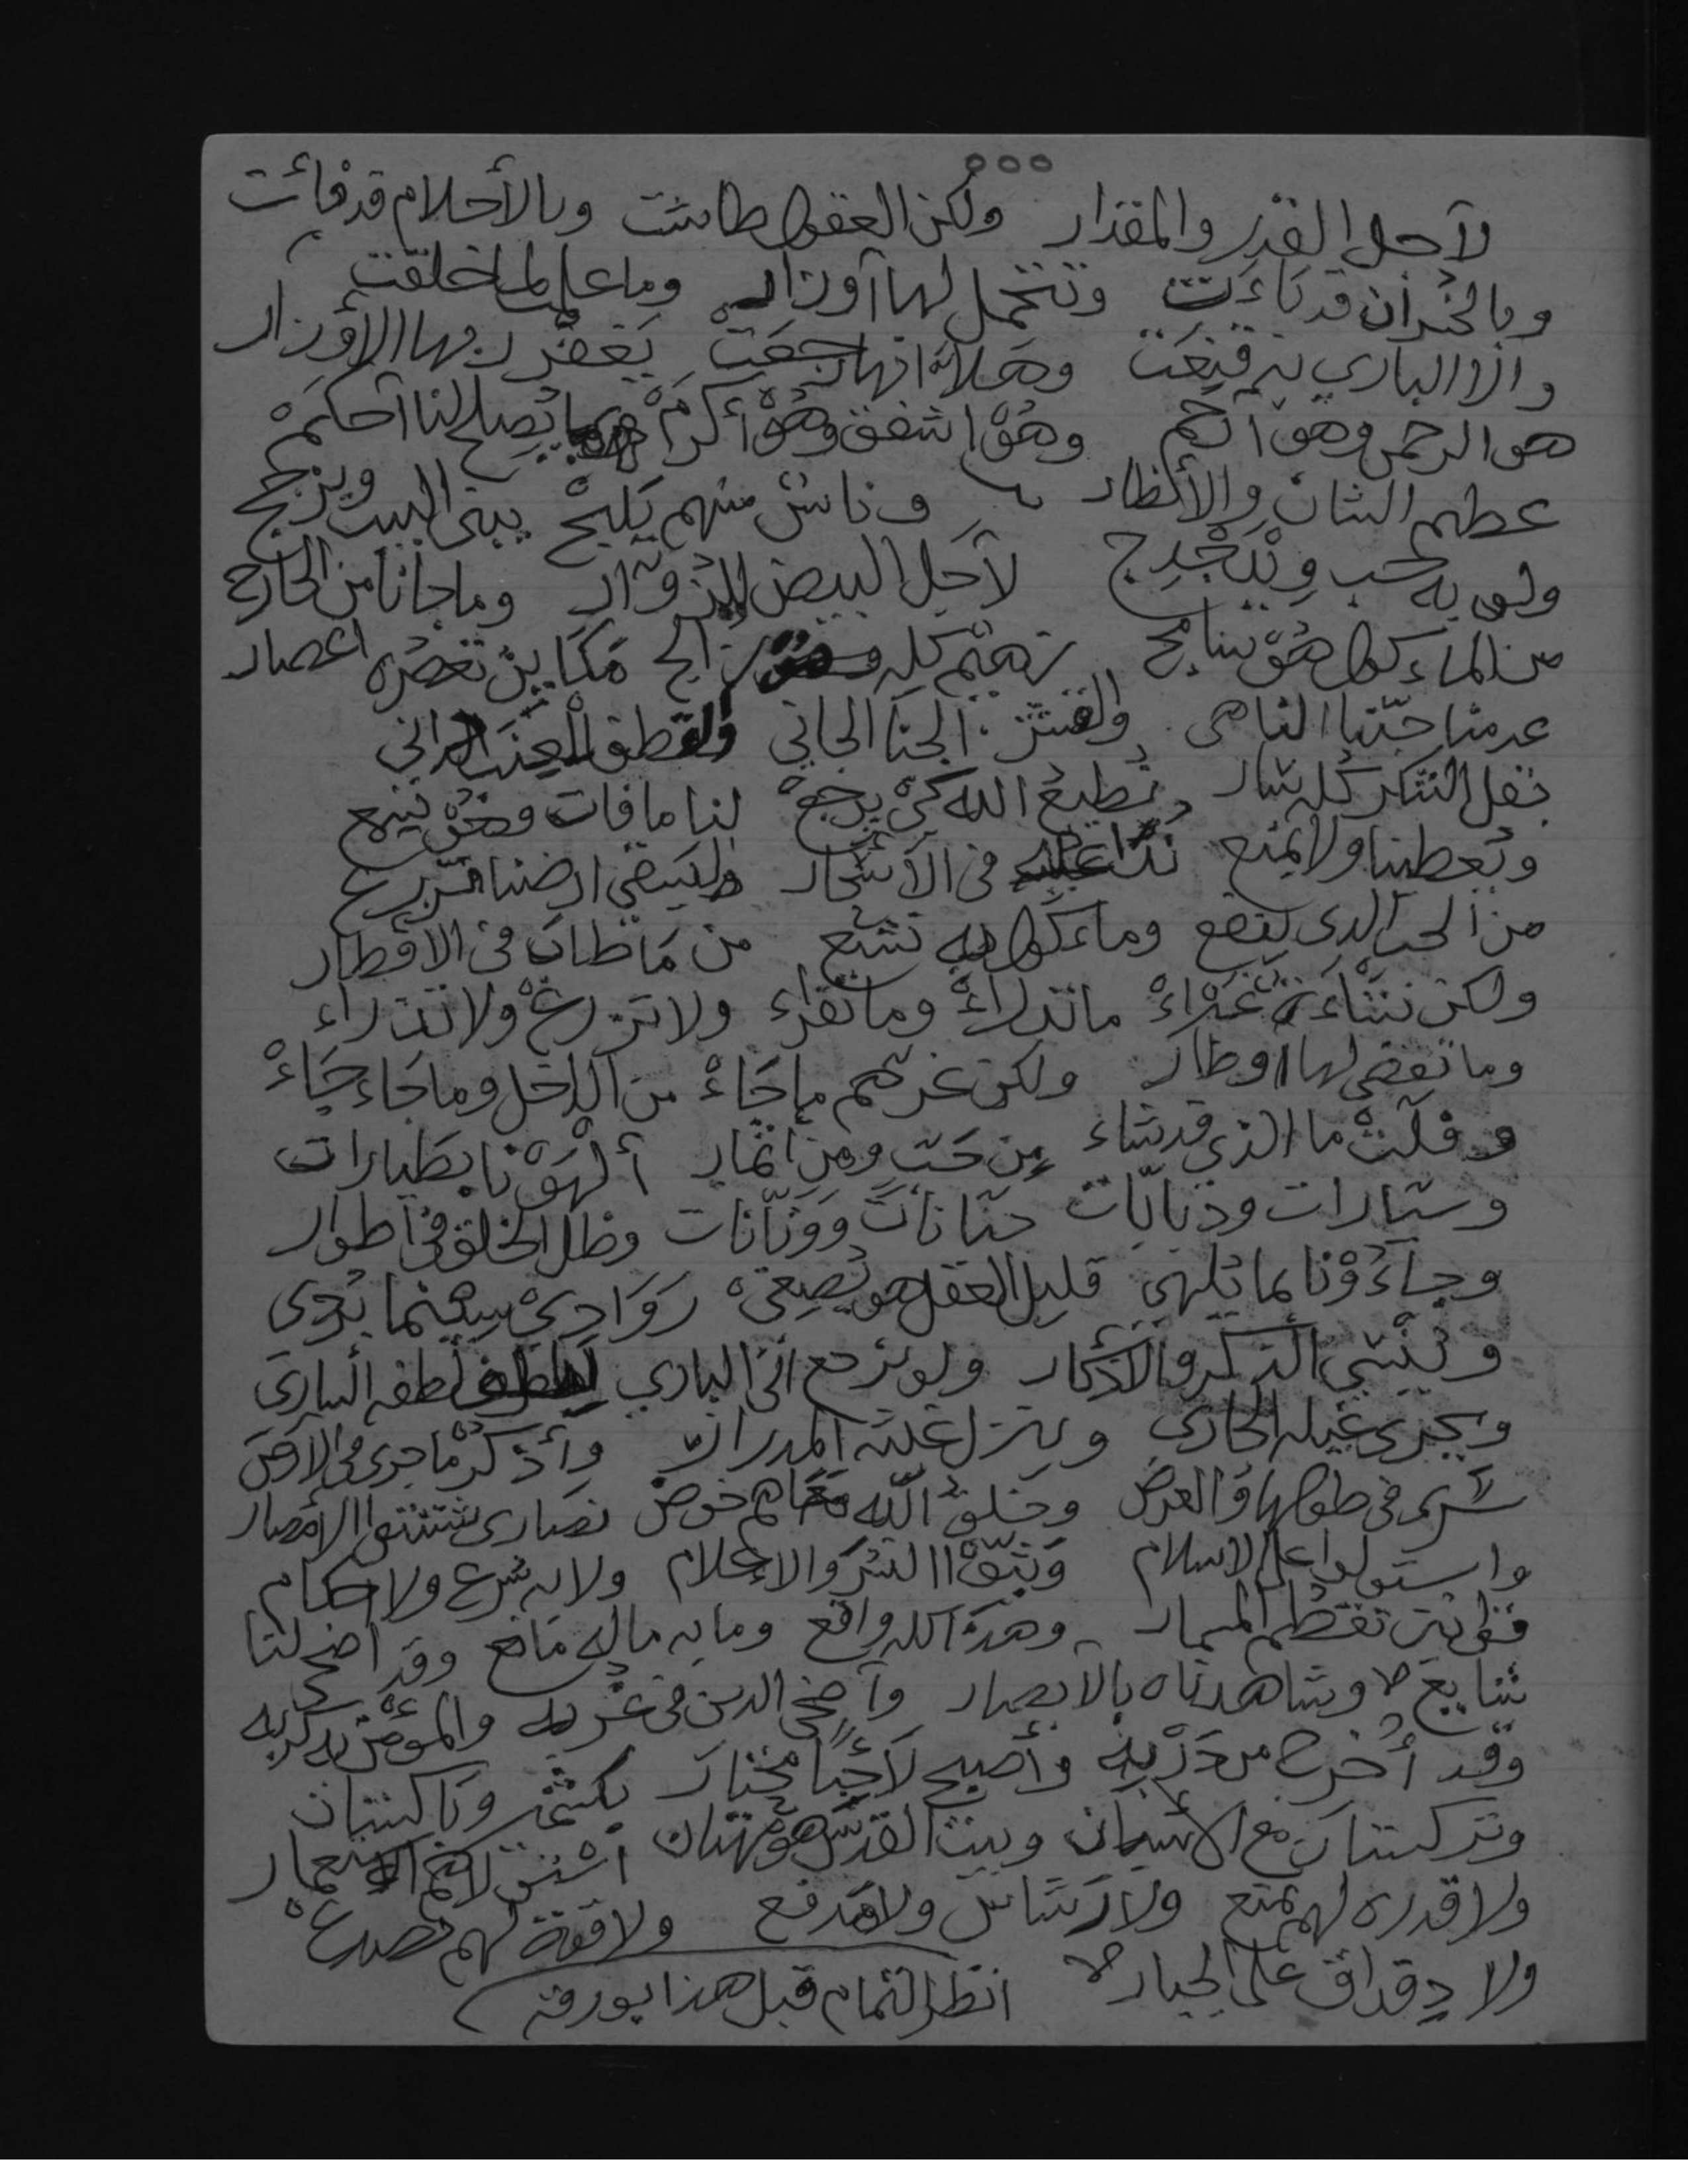 لآجل القدر والمقدار ولكن العقول طاشت وبالأحلام قد فائت
وبالخسران قد باءت وتتحمل لها آوزار وما علم لما خلقت
والا الباري بترقيعت وهلا انها رجعت يغفر ربها الأوزار
هو الرحمن وهو آرحم وهو اشفق وهو أكرم بما يصلح لنا آحكم
عظيم الشان والأنظار وناس منهم يبني البيت ويزجج
ولو به خشب لآجل البيض للزوار وما جانا من الخارج
من الماء كول هو ناتج تهتم كله رايح مكاين تعصره اعصار
عدمنا حبنا الناهي الجنا الجاني ولقطف العنب الداني
بقل الشكر كله نطيع الله كي يرجع لنا ما فات ونحن نتبع
ويعطينا ولا يمنع في الآشجار وليسقي ارضنا نزرع
من الحب الذي ينفع وماء كول به نشبع من ما طاب في الاقطار
ولكن نشاءة غبراء ما تدراء وما تقراء ولا تزرع ولا تذراء
وما تقضي لها اوطار ولكن غرهم ما جاء من الداخل وما جاء جاء
وقلت ما الذي قد شاء من حب ومن اثمار ألهونا بطيارات
وسيارات ودبابات حنانات وونانات وظل الخلق في اطوار
وجاءونا بما يلهي قليل العقل هو يصغي روادي سينما يوحي
وينسي الذكر والاذكار ولو نرجع الى الباري لطفه الساري
ويجري غيله الجاري وينزل غيثه المدرار وأذكر ما جرى في الارض
سرى في طولها والعرض وخلق الله معاهم خوض نصارى شتتوا الامصار
واستولوا على الاسلام وبثوا الشر والاعلام ولا به شرع ولا احكام
قوانين تقطم المسمار وهذا كله واقع وما به ماله مانع وقد اضحى لنا
شايع وشاهدناه بالآبصار وآضحى الدين في غربه والمؤمن به كربه
وقد أخرج من دربه وأصبح لآجئا محتار بكشمير وباكستان
وتركستان مع الأسبان وبيت القدس هو مهتان
ولا قدره لهم تمنع ولا رشاش ولا مدفع ولا قوة لهم تصدع
ولا دقداق على الجبار انظر التمام قبل هذا بورقه